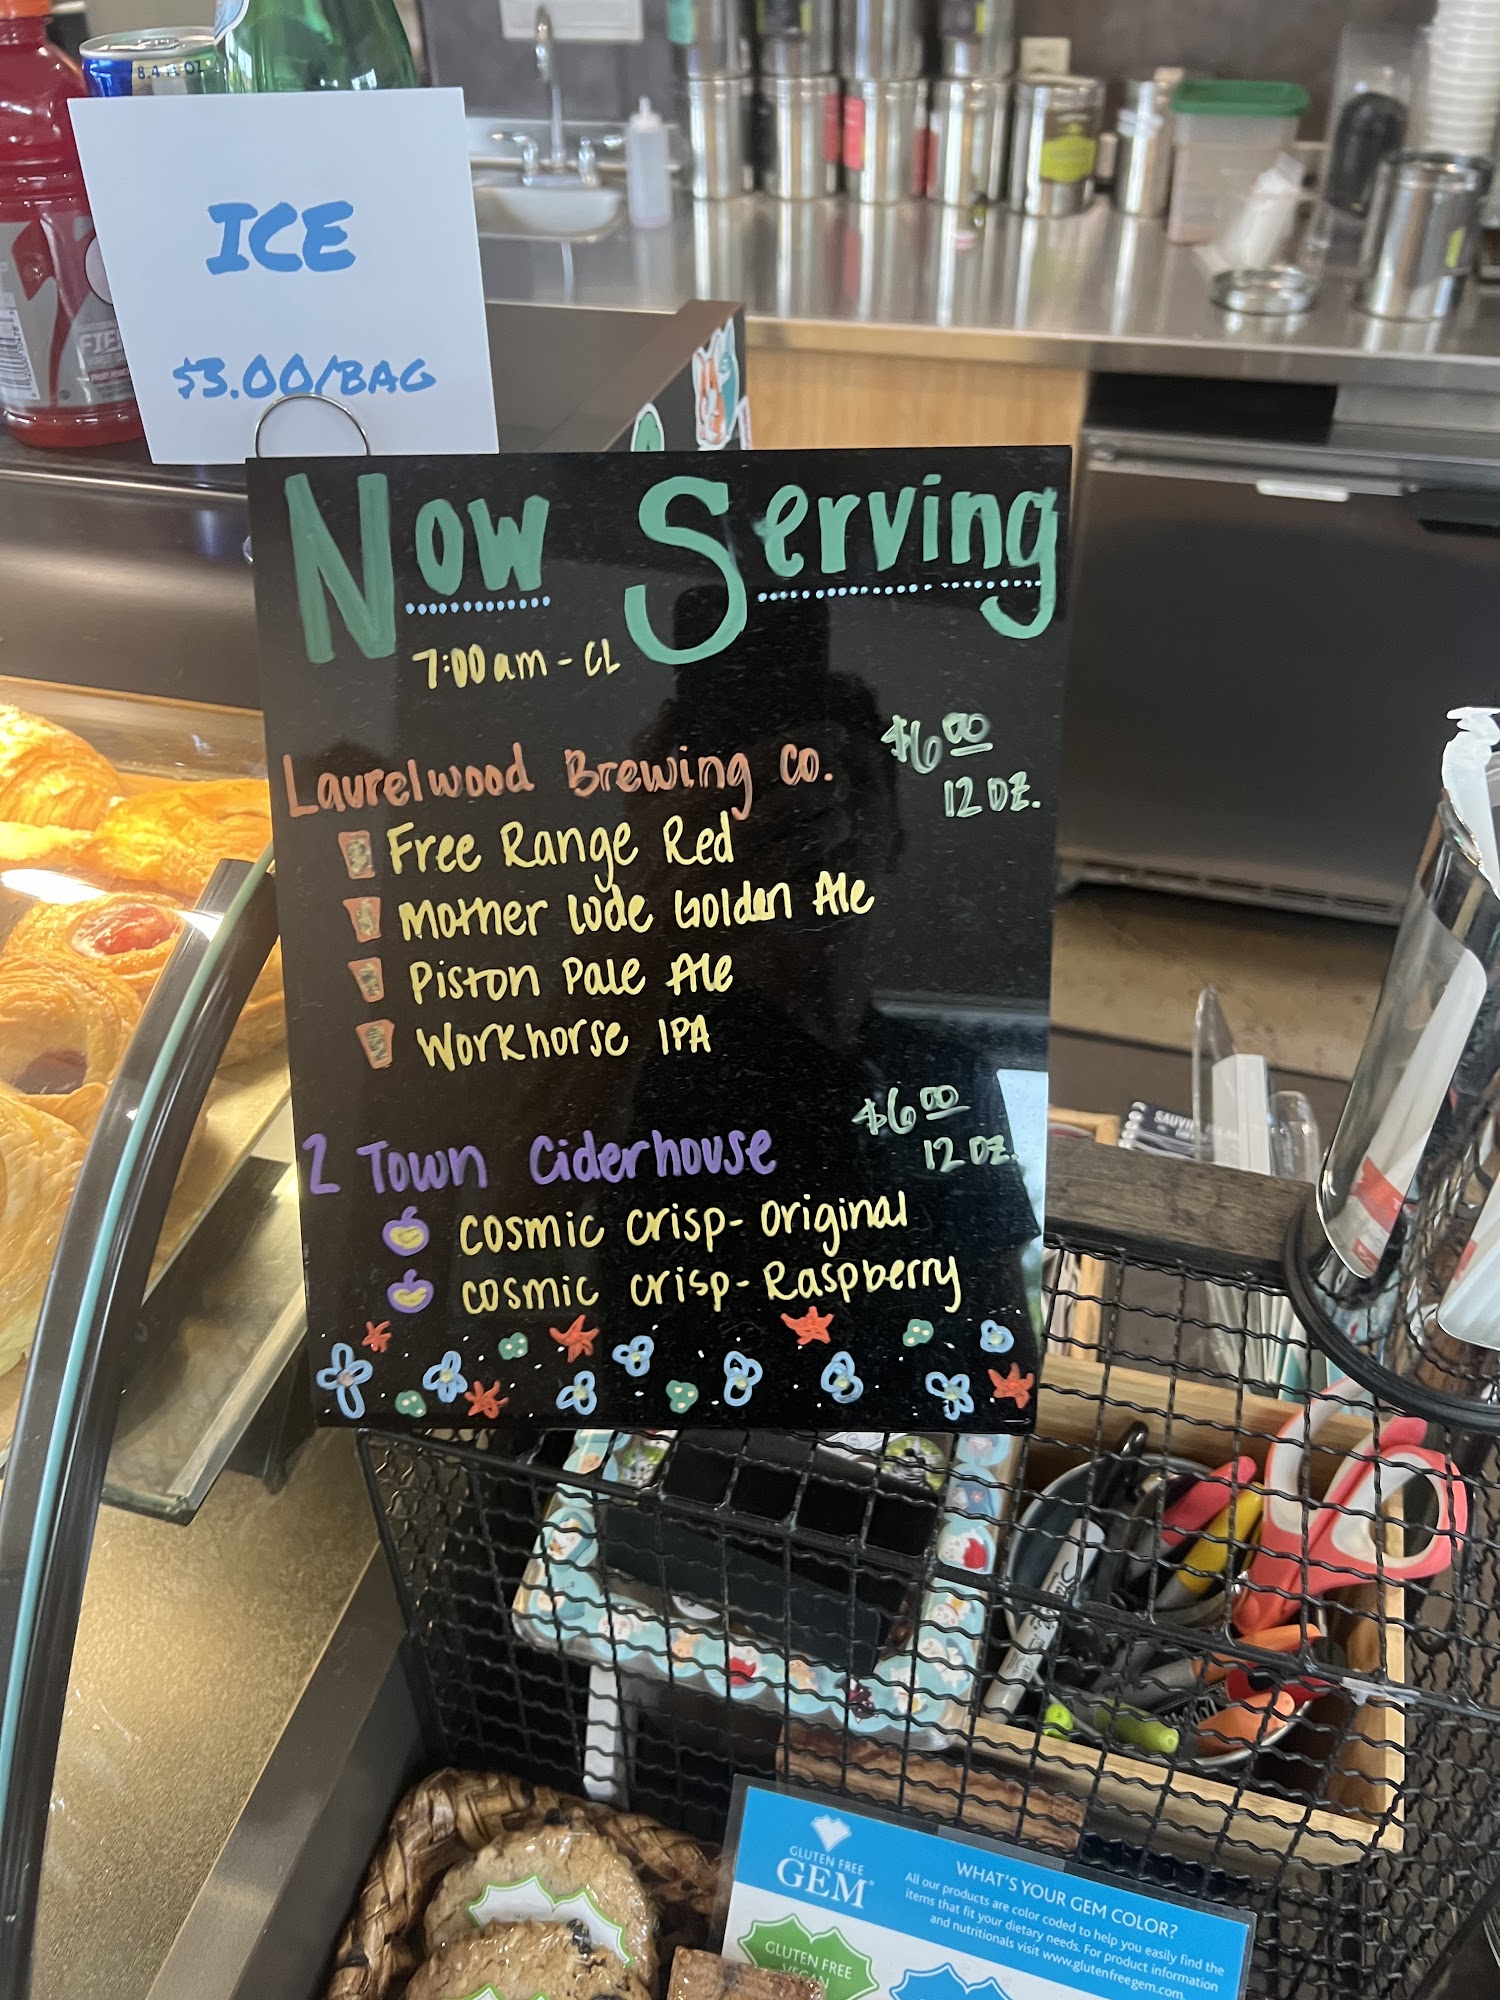 8.4 fl oz
ICE
$3.00/BAG
Now Serving
7:00am - CL
Laurelwood Brewing Co.
$6.00
12 oz.
Free Range Red
Mother Lode Golden Ale
Piston Pale Ale
Workhorse IPA
2 Town Ciderhouse
$6.00
12 oz.
Cosmic Crisp - Original
Cosmic Crisp - Raspberry
GLUTEN FREE
GEM
WHAT'S YOUR GEM COLOR?
All our products are color coded to help you easily find the
items that fit your dietary needs. For product information
and nutritionals visit www.glutenfreegem.com.
GLUTEN FREE
VEGAN